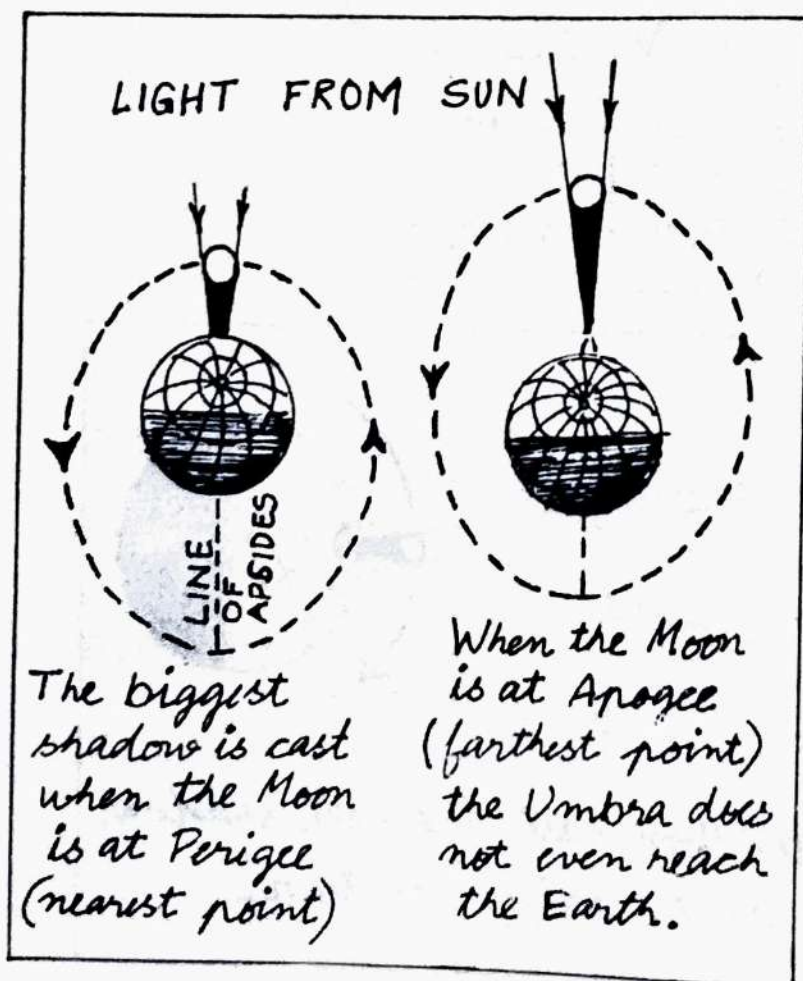 LIGHT FROM SUN
LINE
OF
APSIDES
The biggest
shadow is cast
when the Moon
is at Perigee
(nearest point)
When the Moon
is at Apogee
(farthest point)
the Umbra does
not even reach
the Earth.